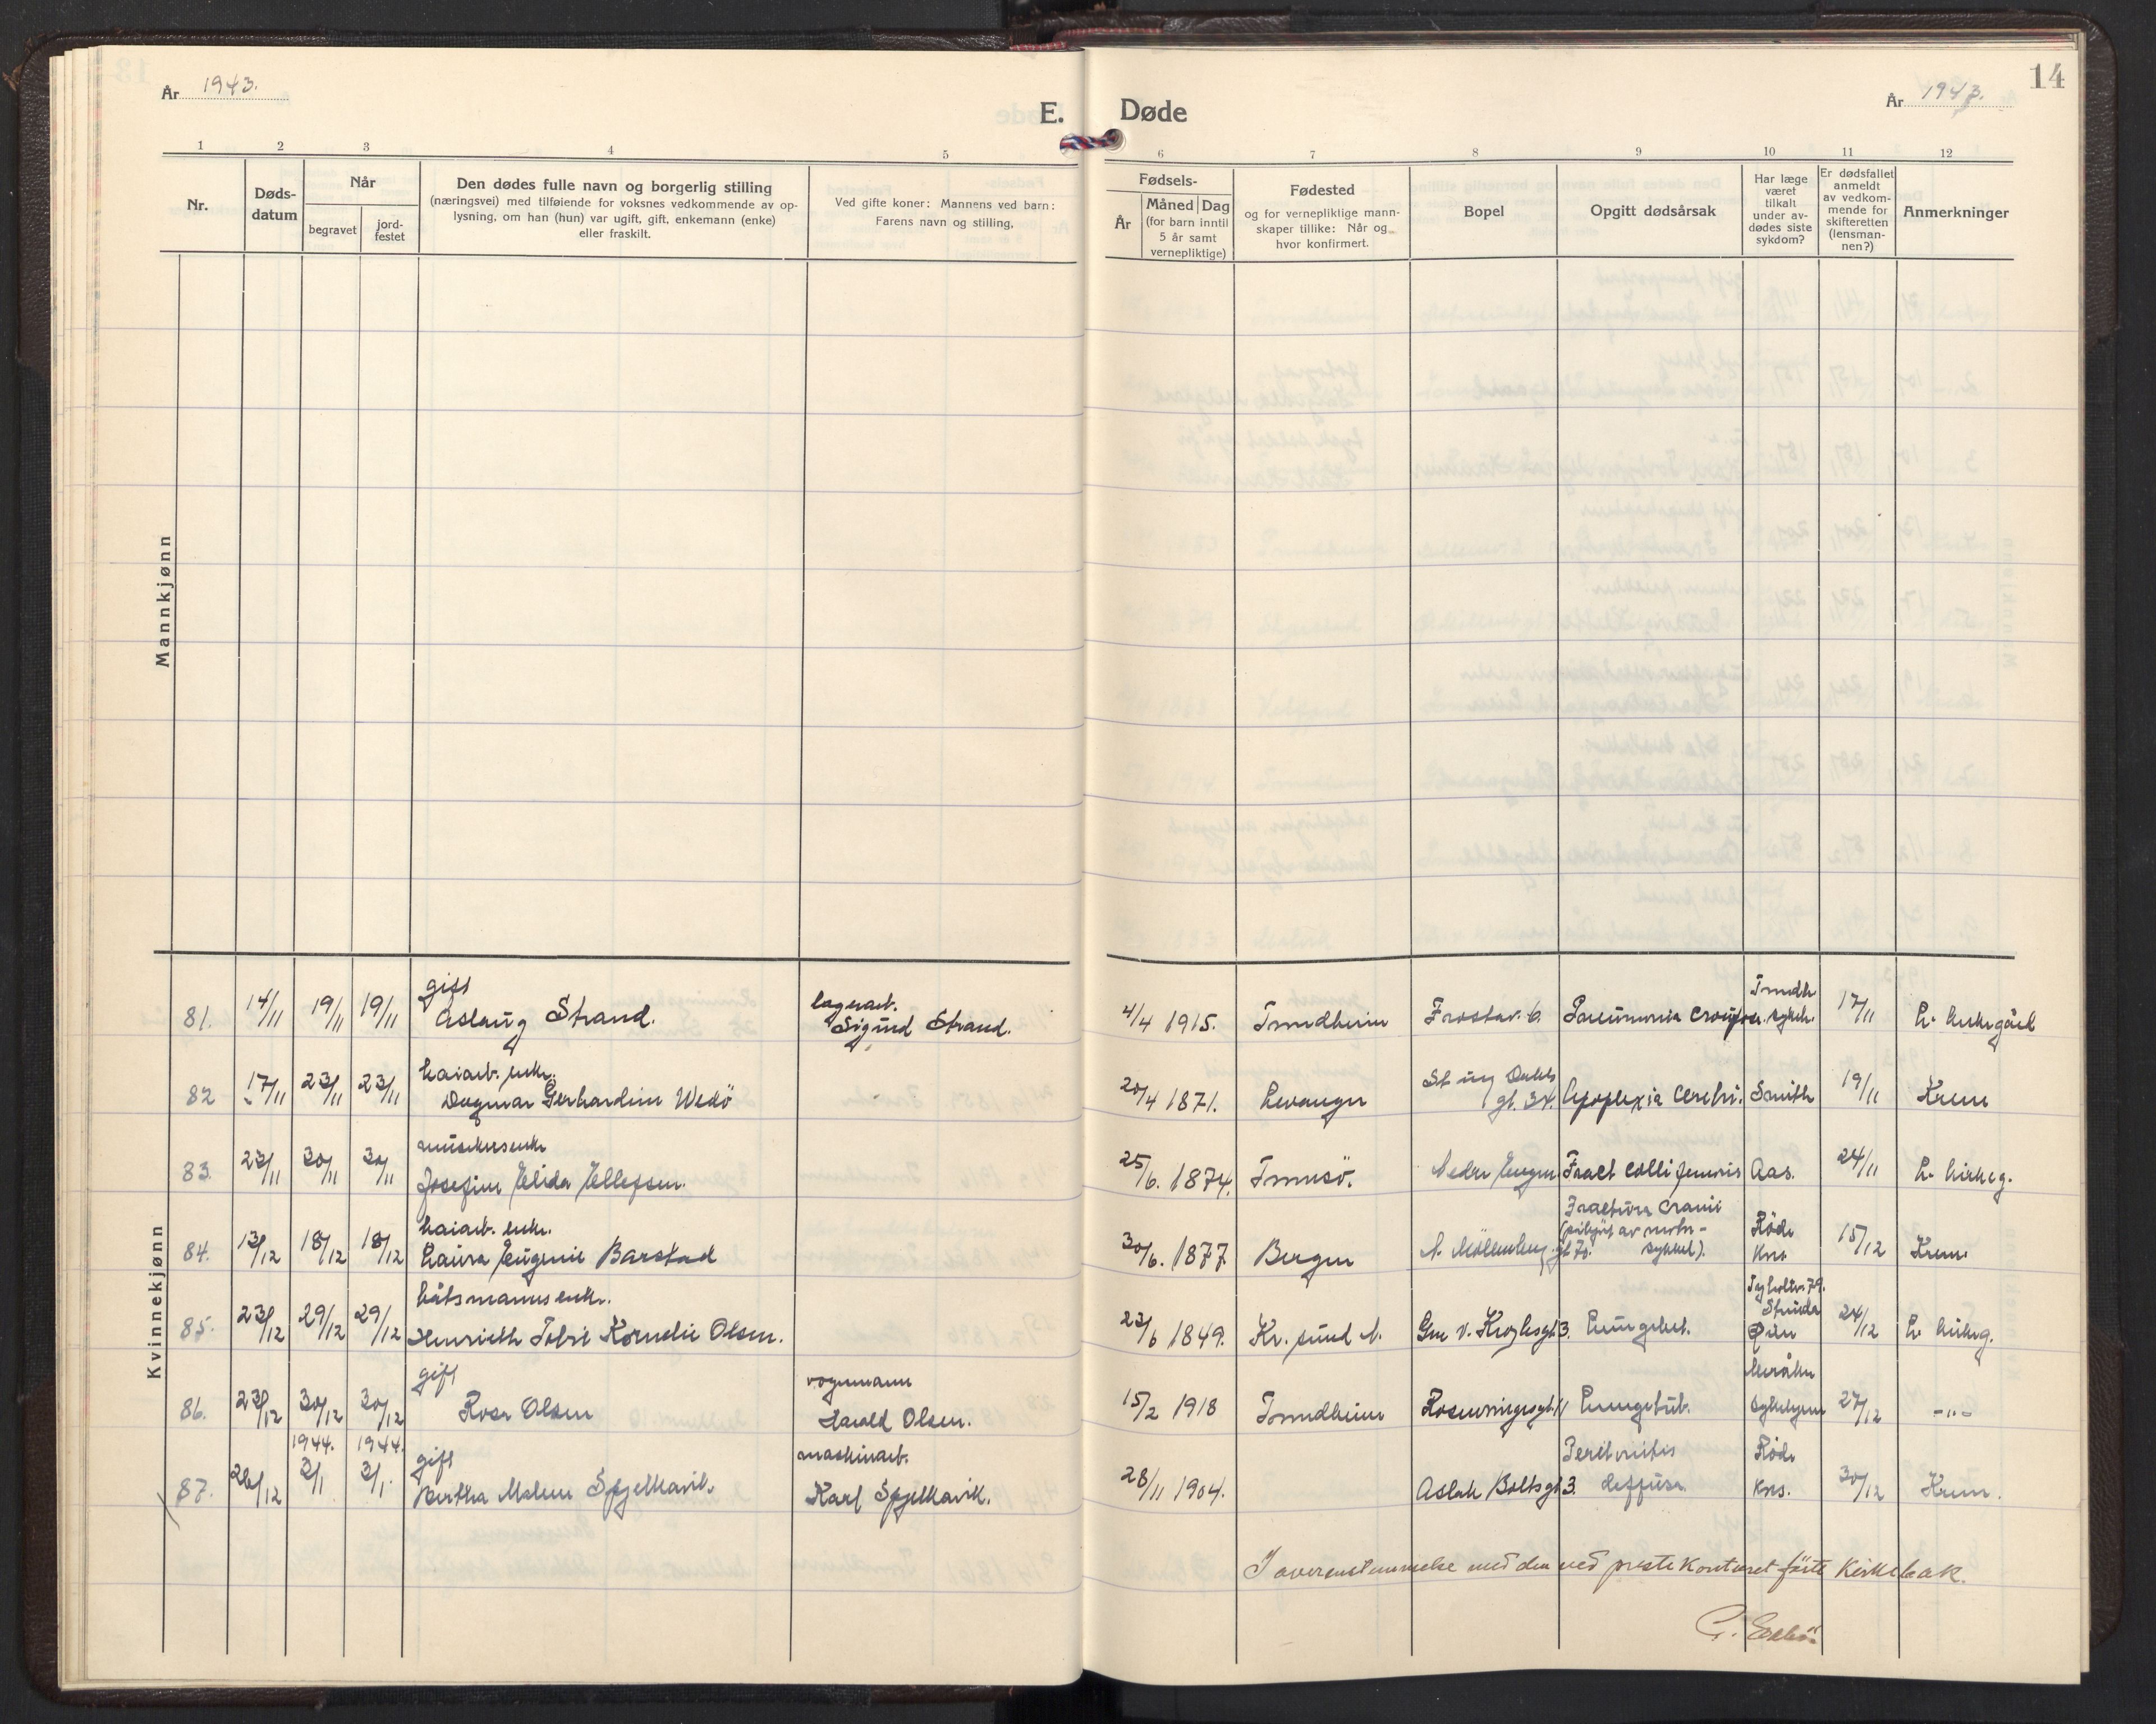 År 1943.
E. Døde
År 1943.
14
1 2 3 4 5 6 7 8 9 10 11 12
Nr.
Døds-
datum
Når
begravet
jord-
festet
Den dødes fulle navn og borgerlig stilling
(næringsvei) med tilføiende for voksnes vedkommende av op-
lysning, om han (hun) var ugift, gift, enkemann (enke)
eller fraskilt.
Ved gifte koner: Mannens ved barn:
Farens navn og stilling,
Fødsels-
År
Måned Dag
(for barn inntil
5 år samt
vernepliktige)
Fødested
og for vernepliktige mann-
skaper tillike: Når og
hvor konfirmert.
Bopel
Opgitt dødsårsak
Har læge
været
tilkalt
under av-
dødes siste
sykdom?
Er dødsfallet
anmeldt
av vedkom-
mende for
skifteretten
(lensman-
nen?)
Anmerkninger
Mannkjønn
Kvinnekjønn
gift lagerarb. Trondh
81. 14/11 19/11 19/11 Aslaug Strand. Sigurd Strand. 4/4 1915. Trondheim Frostav. 6. Pneumonia croupøs. sykeh. 17/11 L. kirkegård
haiarb. enke. St. ing Dahls
82 17/11 23/11 23/11 Dagmar Gerhardine Wedö 20/4 1871. Levanger gt. 34. Apoplexia cerebri. Smith 19/11 Krem
musikersenke
83. 23/11 30/11 30/11 Josefine Elida Ellefsen. 25/6. 1874. Tromsö. Nedre Enger Fract colli femoris Aas. 24/11 L. kirkeg.
haiarb. enke. Fractura cranii
84. 13/12 18/12 18/12 Laura Eugenie Barstad 30/6. 1877. Bergen N. Möllenberg gt 70. (påkjört av motor-
sykkel). Röde
Krs. 15/12 Krem.
båtsmanns enke. Tyholtv. 79.
85. 23/12 29/12 29/12 Henriette Tobie Kornelie Olsen. 23/6 1849. Kr. sund N. Gm v. Kroghsgt 3. Lungebet. 24/12 L. kirkeg.
gift vognmann Meråker
86. 23/12 30/12 30/12 Rosa Olsen Harald Olsen. 15/2 1918 Trondheim Rosenvingesgt. 11 Lungetub. sykehjem 27/12 -"-
1944. 1944. gift maskinarb. Peritonitis Röde
87. 26/12 3/1 3/1. Bertha Malene Spjelkavik. Karl Spjelkavik. 28/11 1904. Aslak Boltsgt 3. diffusa Krs. 30/12 Krem.
I overenstemmelse med den ved prestekontoret förte kirkebok.